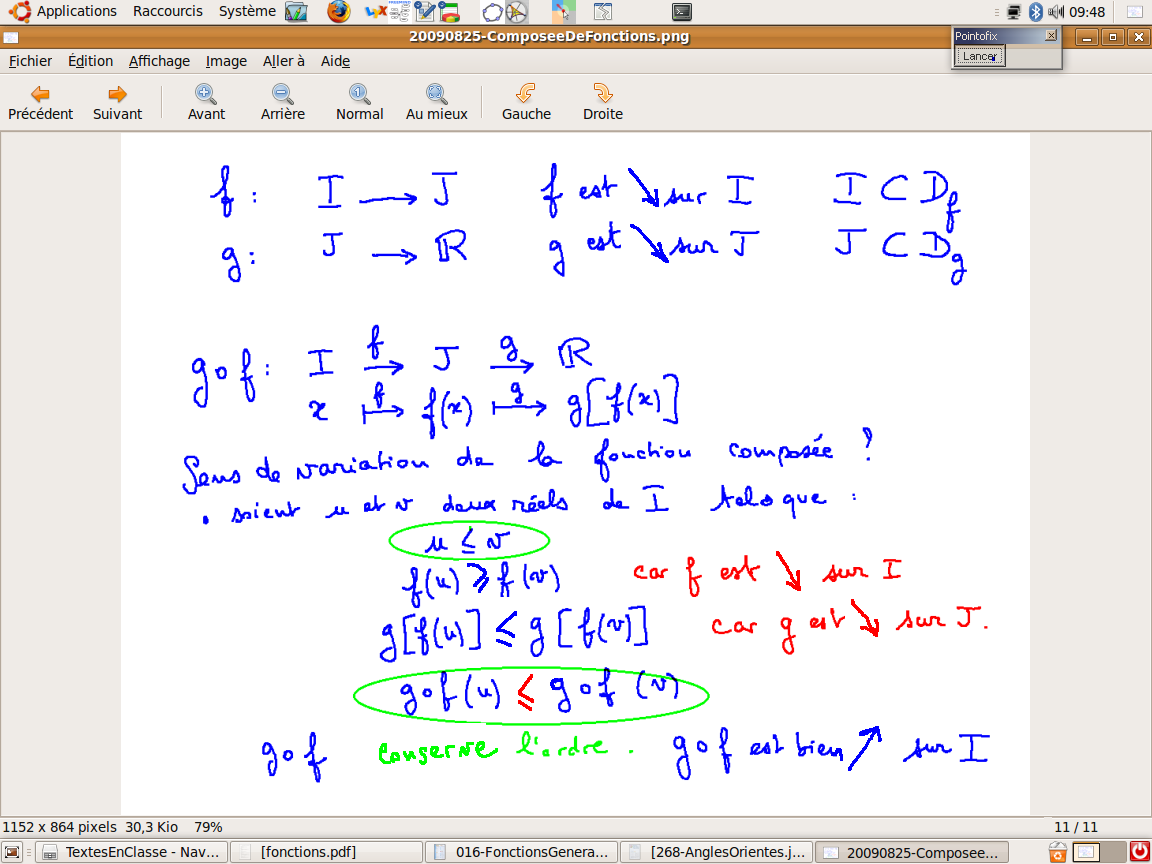 Applications Raccourcis Système 09:48
20090825-ComposeeDeFonctions.png
Pointofix
Lancer
Fichier Édition Affichage Image Aller à Aide
Précédent Suivant Avant Arrière Normal Au mieux Gauche Droite
f : I ⟶ J f est ↘ sur I I ⊂ D_f
g : J ⟶ ℝ g est ↘ sur J J ⊂ D_g
g∘f : I ⟶^f J ⟶^g ℝ
x ⟼^f f(x) ⟼^g g[f(x)]
Sens de variation de la fonction composée ?
• soient u et v deux réels de I tels que :
u ≤ v
f(u) ≥ f(v) car f est ↘ sur I
g[f(u)] ≤ g[f(v)] car g est ↘ sur J.
g∘f(u) ≤ g∘f(v)
g∘f conserve l'ordre. g∘f est bien ↗ sur I
1152 x 864 pixels 30,3 Kio 79% 11 / 11
TextesEnClasse - Nav... [fonctions.pdf] 016-FonctionsGenera... [268-AnglesOrientes.j... 20090825-Composee...